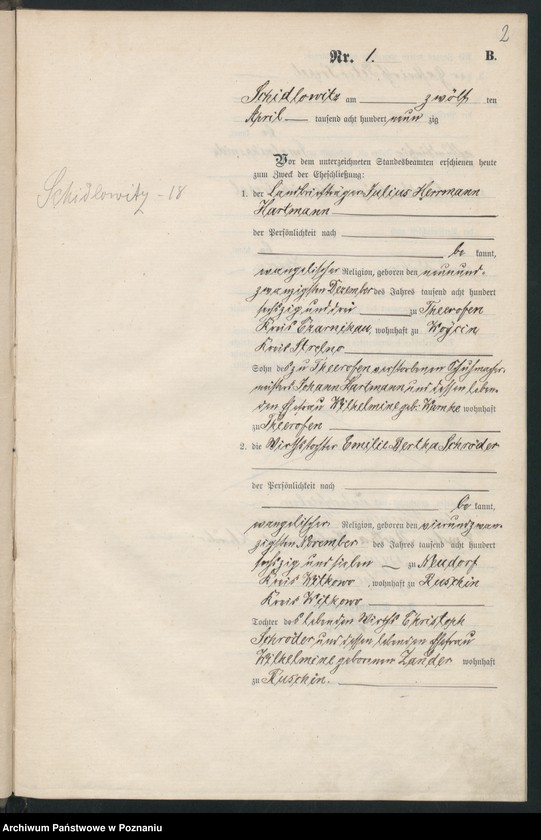 2
Nr. 1. B.
Schidlowitz am zwölf ten
April tausend acht hundert neun zig
Vor dem unterzeichneten Standesbeamten erschienen heute
zum Zweck der Eheschließung:
Schidlowitz - 18
1. der Landbriefträger Julius Herrmann
Hartmann
der Persönlichkeit nach
be kannt,
evangelischer Religion, geboren den neunund-
zwanzigsten Dezember des Jahres tausend acht hundert
sechszig und drei zu Theerofen
Kreis Czarnikau, wohnhaft zu Woycin
Kreis Strelno
Sohn des zu Theerofen verstorbenen Schuhmacher-
meisters Johann Hartmann und dessen leben-
den Ehefrau Wilhelmine geb. wohnhaft
zu Theerofen
2. die Wirthstochter Emilie Bertha Schröder
der Persönlichkeit nach
be kannt,
evangelischer Religion, geboren den vierundzwan-
zigsten November des Jahres tausend acht hundert
sechszig und sieben zu Neudorf
Kreis Witkowo, wohnhaft zu Ruschin
Kreis Witkowo
Tochter des lebenden Wirths Christoph
Schröder und dessen lebenden Ehefrau
Wilhelmine geborenen Zander wohnhaft
zu Ruschin.
Archiwum Państwowe w Poznaniu